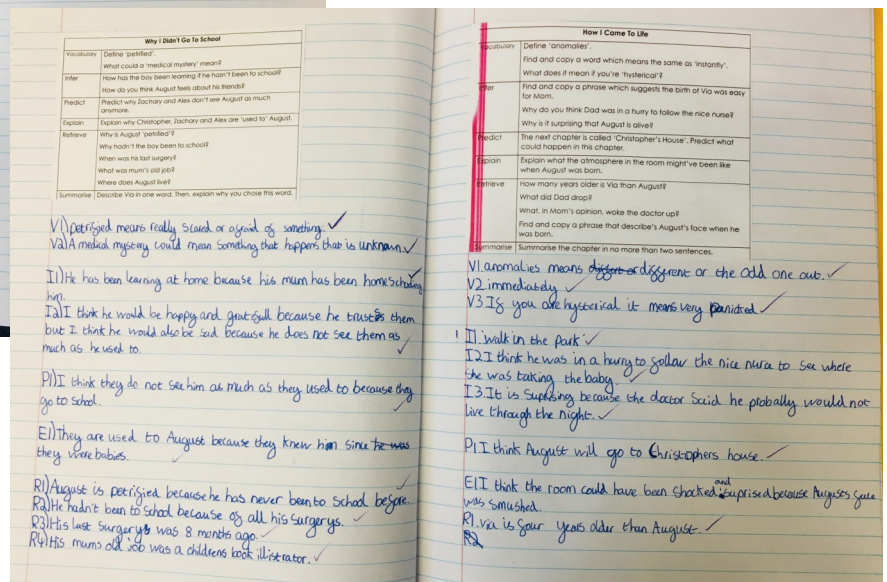 Why I Didn't Go To School
Vocabulary Define 'petrified'.
What could a 'medical mystery' mean?
Infer How has the boy been learning if he hasn't been to school?
How do you think August feels about his friends?
Predict Predict why Zachary and Alex don't see August as much
anymore.
Explain Explain why Christopher, Zachary and Alex are 'used to' August.
Retrieve Why is August 'petrified'?
Why hadn't the boy been to school?
When was his last surgery?
What was mum's old job?
Where does August live?
Summarise Describe Via in one word. Then, explain why you chose this word.
V1) petrified means really scared or afraid of something.
V2) A medical mystery could mean something that happens that is unknown.
I1) He has been learning at home because his mum has been homeschooling
him.
I2) I think he would be happy and gratefull because he trusts them
but I think he would also be sad because he does not see them as
much as he used to.
P1) I think they do not see him as much as they used to because they
go to school.
E1) They are used to August because they knew him since he was
they were babies.
R1) August is petrified because he has never been to school before.
R2) He hadn't been to school because of all his surgerys.
R3) His last surgerys was 8 months ago.
R4) His mums old job was a childrens book illistrator.
How I Came To Life
Vocabulary Define 'anomalies'.
Find and copy a word which means the same as 'instantly'.
What does it mean if you're 'hysterical'?
Infer Find and copy a phrase which suggests the birth of Via was easy
for Mom.
Why do you think Dad was in a hurry to follow the nice nurse?
Why is it surprising that August is alive?
Predict The next chapter is called 'Christopher's House'. Predict what
could happen in this chapter.
Explain Explain what the atmosphere in the room might've been like
when August was born.
Retrieve How many years older is Via than August?
What did Dad drop?
What, in Mom's opinion, woke the doctor up?
Find and copy a phrase that describe's August's face when he
was born.
Summarise Summarise the chapter in no more than two sentences.
V1. anomalies means different or the odd one out.
V2. immediately
V3. If you are hysterical it means very panicked
I1. walk in the park
I2. I think he was in a hurry to follow the nice nurce to see where
she was taking the baby.
I3. It is suprising because the doctor said he probally would not
live through the night.
P1 I think August will go to Christophers house.
E1 I think the room could have been shocked and suprised because Auguses face
was smushed.
R1. via is four years older than August.
R2